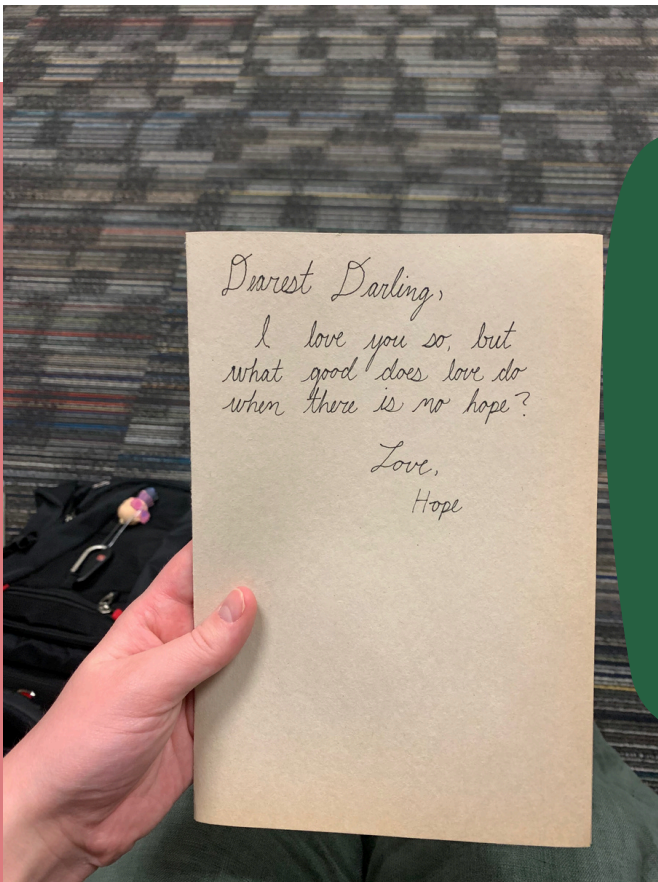 Dearest Darling,
I love you so, but
what good does love do
when there is no hope?
Love,
Hope